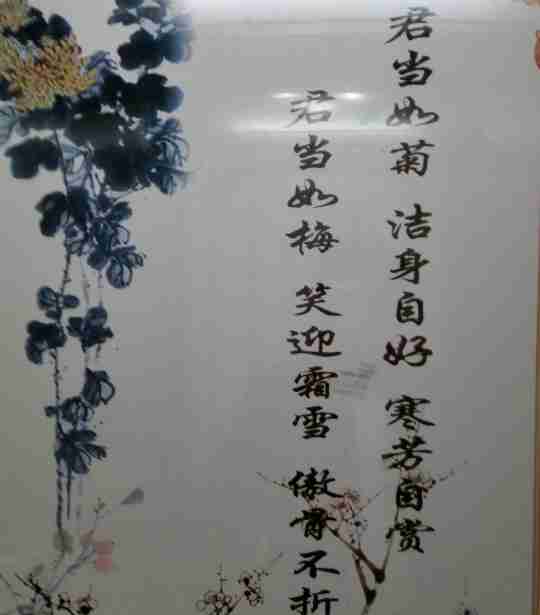 君当如菊 洁身自好 寒芳自赏
君当如梅 笑迎霜雪 傲骨不折